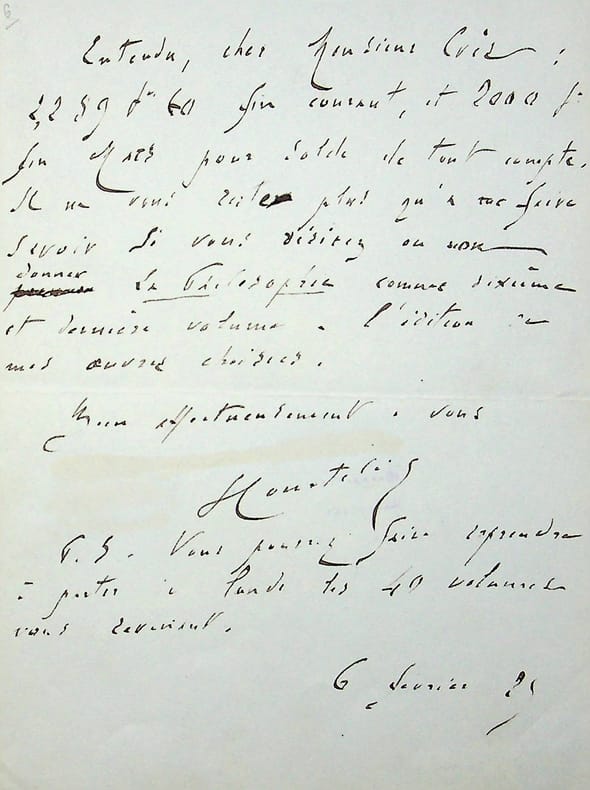 6
Entendu, cher Monsieur Crès :
2,289 frs 60 fin courant, et 2000 fr
fin Mars pour solde de tout compte.
Il ne vous reste plus qu'à me faire
savoir si vous désirez ou non
donner
La Philosophie comme dixième
et dernière volume à l'édition de
mes œuvres choisies.
Bien affectueusement à vous
P.S. Vous pourrez faire reprendre
à partir de lundi les 40 volumes
vous revenant.
6 février 25